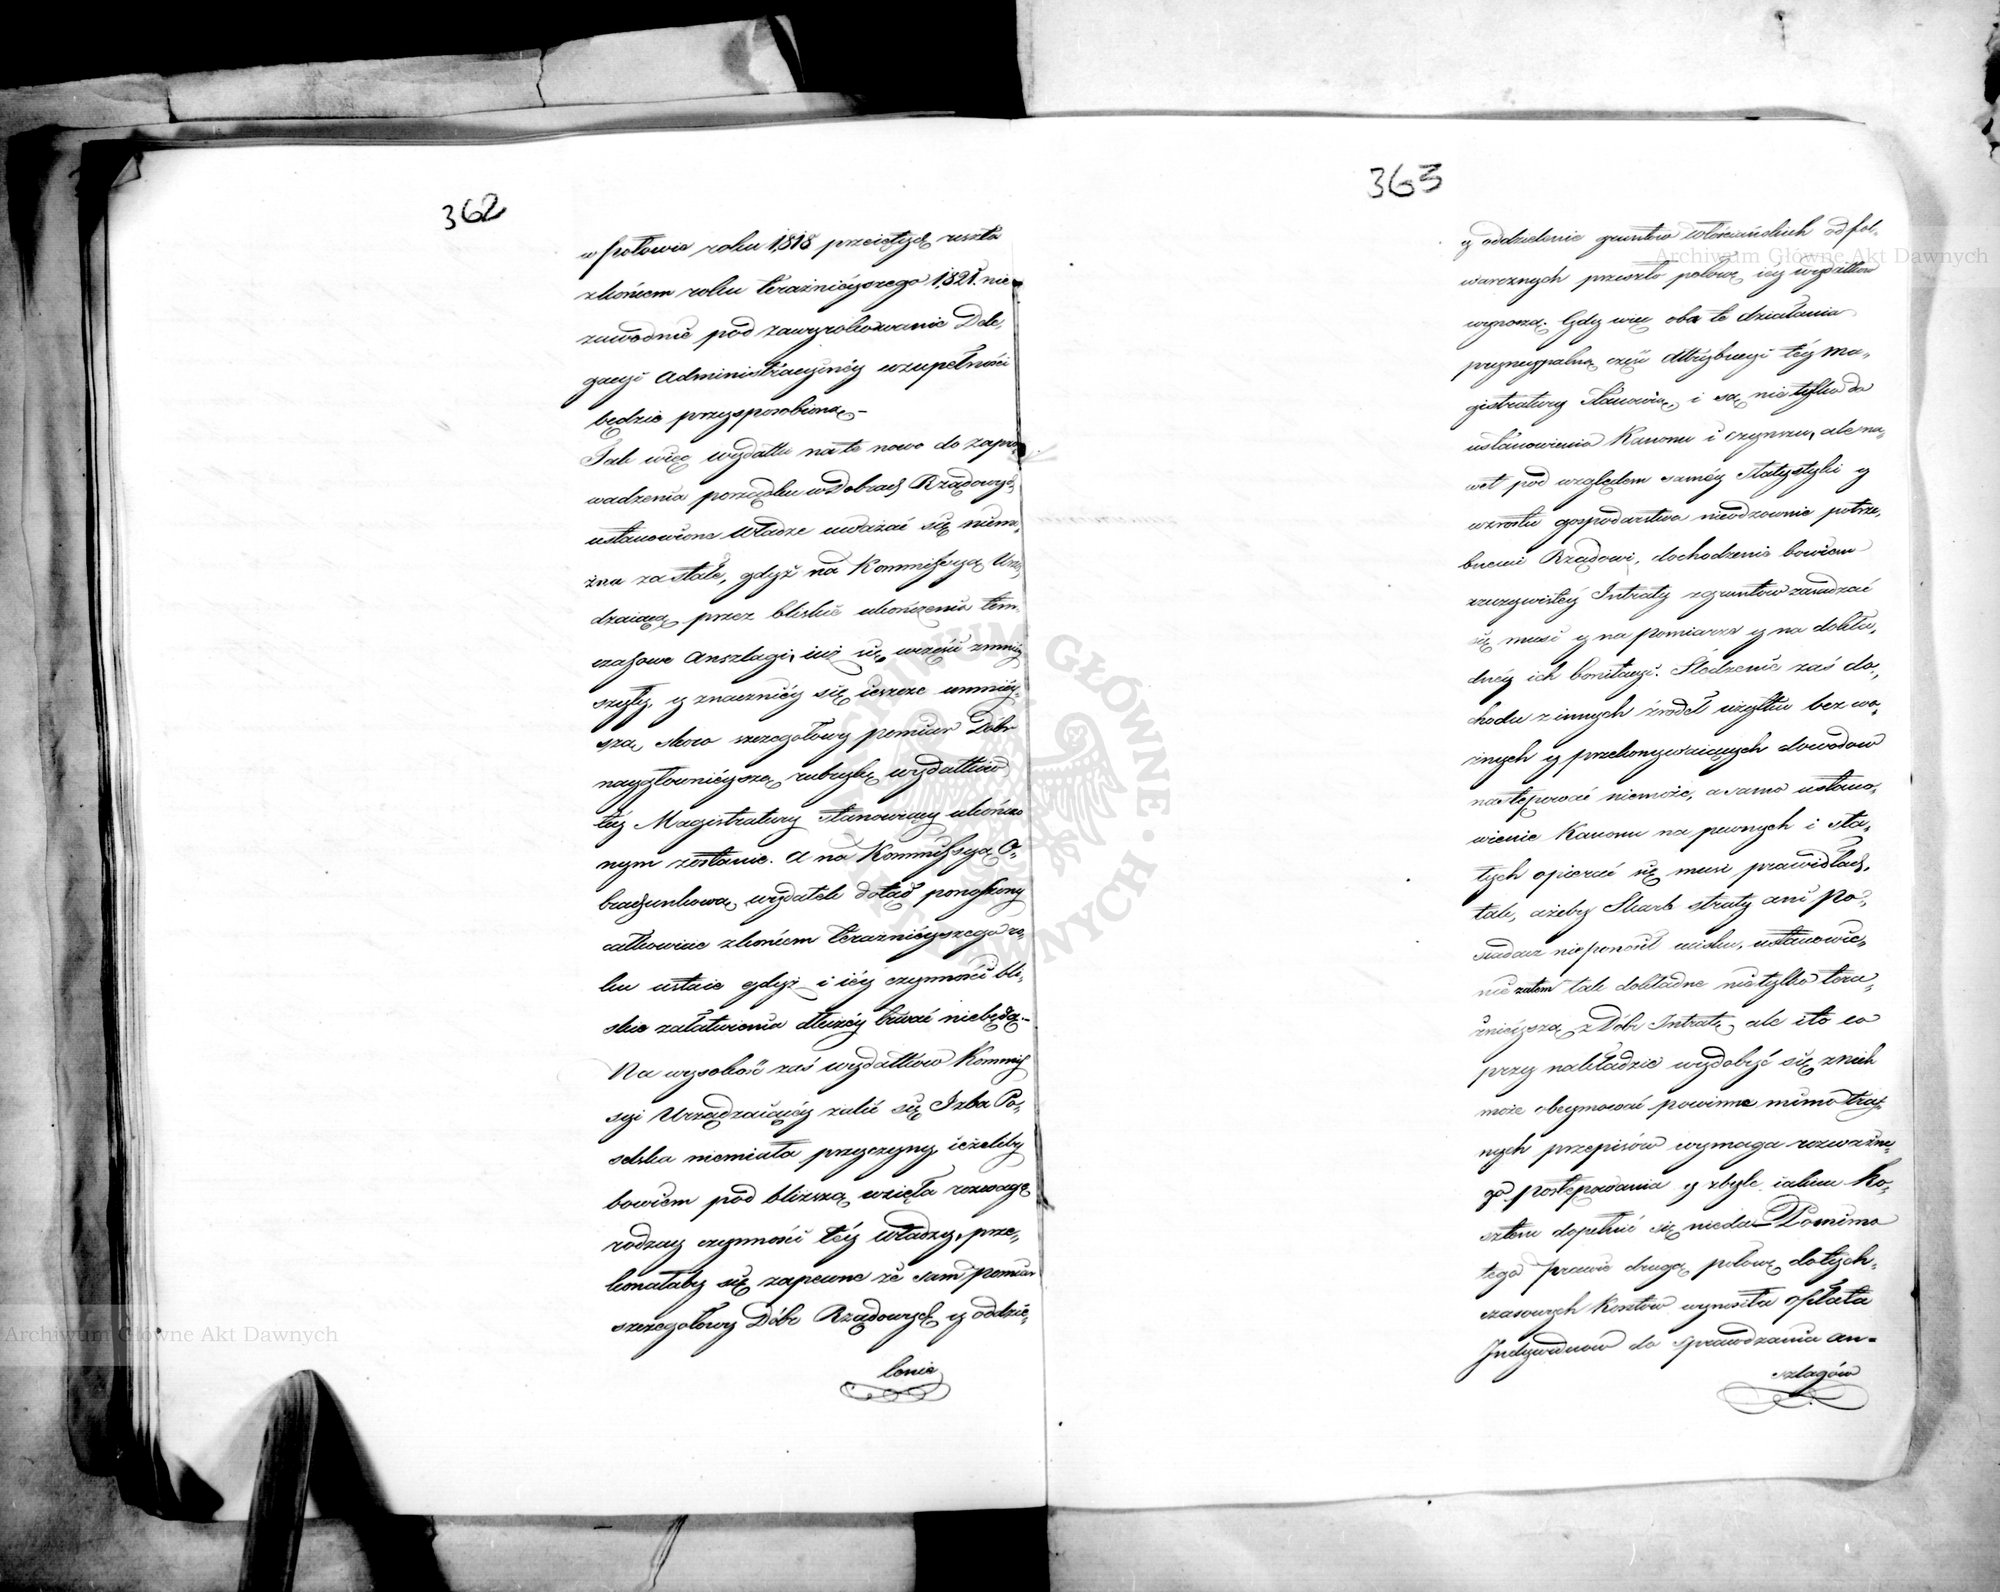 362
w połowie roku 1818 przeciętych, reszta
z końcem roku teraźnieyszego 1821. nie
zawodnie pod zawyrokowanie Dele,
gacyi Administracyinéy w zupełności
będzie przysposobioną.—
Jak więc wydatki na te nowo do zapro,
wadzenia porządku w Dobrach Rządowych
ustanowione Władze uważać się niemo,
żna za stałe, gdyż na Kommissyą Urzą
dzaiącą przez bliskie ukończenie tym
czasowe Anszlagi, iuż się w części zmniéy
szyły, y znacznéy się ieszcze zmniéy,
szą, skoro szczegołowy pomiar Dóbr
naygłownieyszą rubrykę wydatków
téy Magistratury stanowiący ukończo
nym zostanie. A na Kommissyą O,
brachunkową wydatek dotąd ponoszony
całkowicie z końcem teraźnieyszego ro,
ku ustaie gdyż i iéy czynności bli,
skie załatwienia dłużéy trwać niebędą.—
Na wysokość zaś wydatków Kommis
syi Urządzaiącéy żalić się Izba Po,
selska niemiała przyczyny, ieżeliby
bowiem pod bliższą wzięła rozwagę
rodzay czynności téy władzy, prze,
konałaby się zapewne że sam pomiar
szczegołowy Dóbr Rządowych y oddzie,
lenie
363
y oddzielenie gruntów włościańskich od fol,
warcznych przeszło połowę iéy wydatków
wynoszą. Gdy więc oba te działania
pryncypalną część Attrybucyi téy Ma,
gistratury stanowią, i są nie tylko do
ustanowienia Kanonu i czynszu, ale na,
wet pod względem saméy Statystyki y
wzrostu gospodarstwa nieodzownie potrze,
bnemi Rządowi, dochodzenie bowiem
rzeczywistéy Intraty z gruntów zasadzać
się musi y na pomiarze y na dokła,
dnéy ich bonitacyi. Śledzenie zaś do,
chodu z innych źrodeł użytku bez wa,
żnych y przekonywaiących dowodow
następować niemoże, a samo ustano,
wienie Kanonu na pewnych i sta,
łych opierać się musi prawidłach,
tak, ażeby Skarb straty ani Po,
siadacz nie ponosił ucisku, ustanowie,
nie zatem tak dokładne nie tylko tera,
źnieyszą z Dóbr Intratę, ale i to co
przy nakładzie wydobyć się z nich
może obeymować powinne mimo traf,
nych przepisów wymaga rozważne,
go postępowania y zbyt iakim Ko,
sztem dopełnić się nieda. Pomimo
tego prawie drugą połowę dotych,
czasowych Kosztów wynosiła opłata
Indywiduow do sprawdzania an,
szlagów
Archiwum Główne Akt Dawnych
Archiwum Główne Akt Dawnych